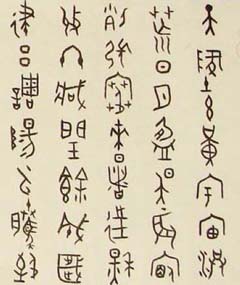 天地玄黃宇宙洪
荒日月盈昃辰宿
列張寒來暑往秋
收冬藏閏餘成歲
律呂調陽雲騰致